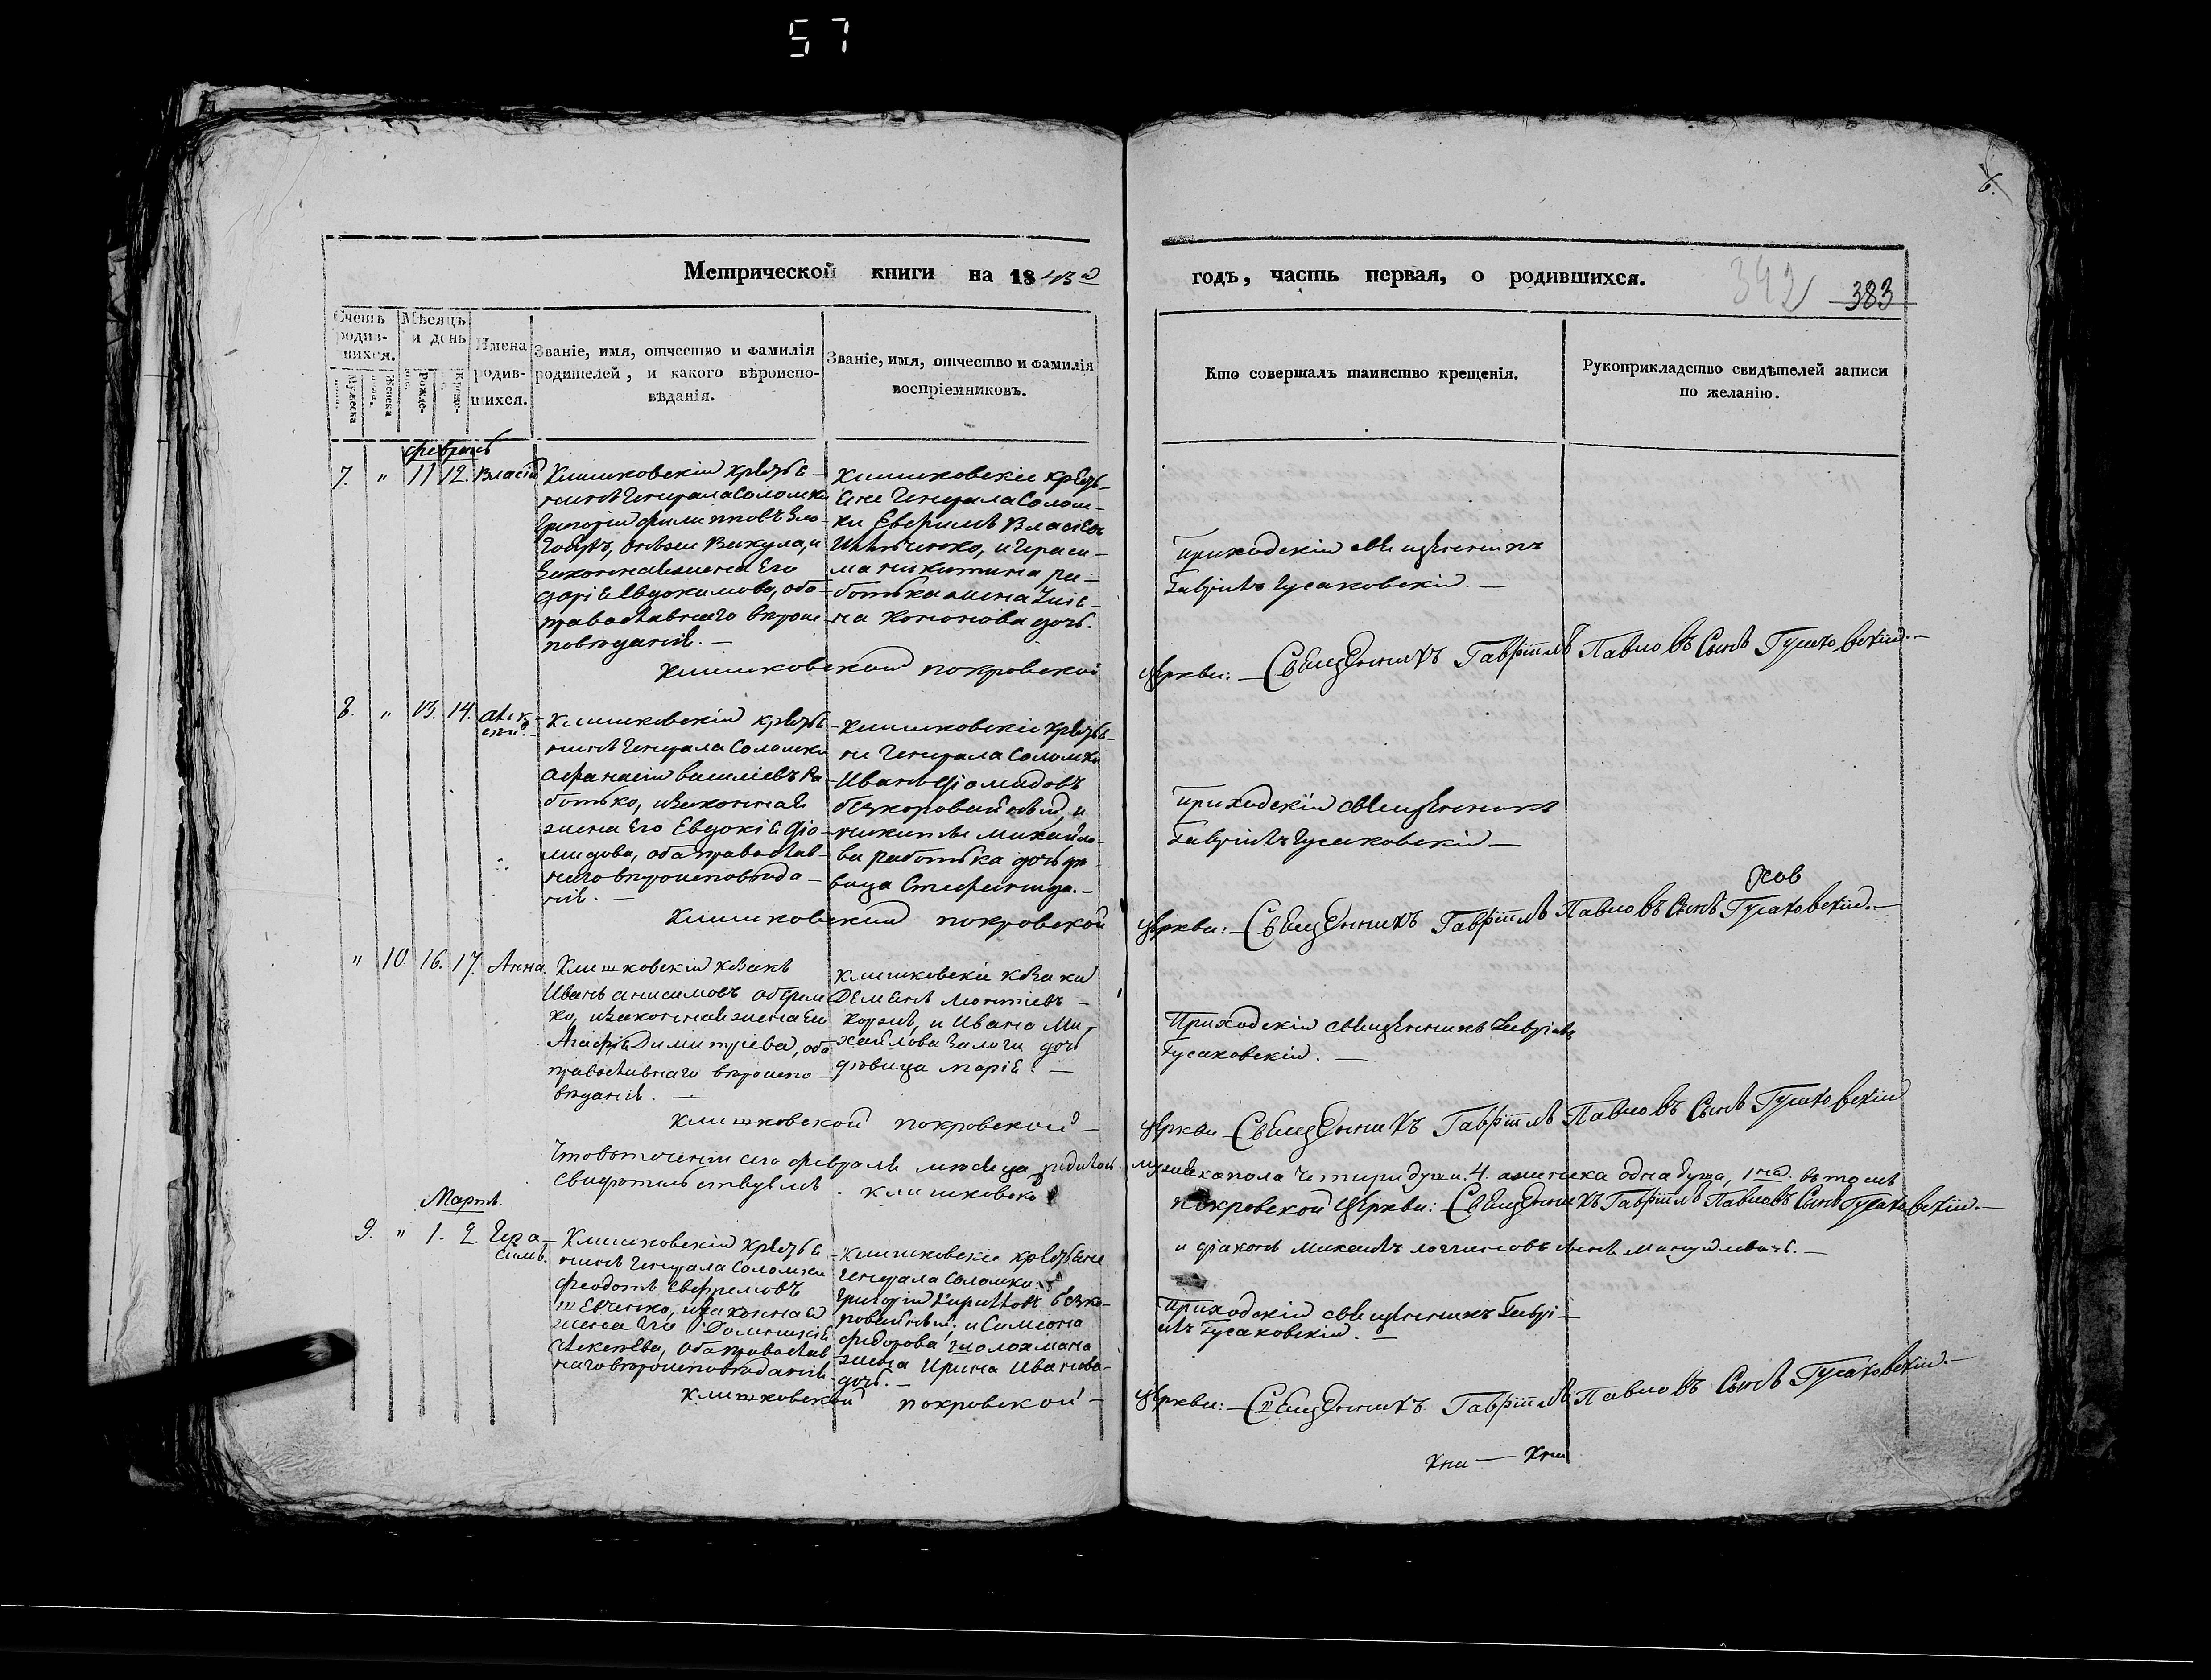 57
6.
Метрической книги на 1843й
годъ, часть первая, о родившихся.
342 383
Счетъ родив-шихся.
Мужеска
Женска
Мѣсяцъ и день
Рожде-
Креще-
Имена родив-шихся.
Званіе, имя, отчество и фамилія
родителей, и какого вѣроиспо-
вѣданія.
Званіе, имя, отчество и фамилія
воспріемниковъ.
Кто совершалъ таинство крещенія.
Рукоприкладство свидѣтелей записи
по желанію.
февраль
7. " 11 12. Власій
Клишковскій крестья-
нинъ Генерала Соломки
Григорій Филиповъ
законная жена его
Евдокимова, оба
православнаго вѣроис-
повѣданія. —
Клишковскіе кресть-
яне Генерала Солом-
ки Ефримъ Власіевъ
Ильченко, и Гераси-
ма Никитина ра-
ботька жена
Кононова дочь.
Приходскій священникъ
Гавріилъ Гусаковскій. —
Клишковской покровской
церкви: — Священникъ Гавріилъ Павловъ Сынъ Гусаковскій. —
8. " 13. 14. Алек-
сѣй. —
Клишковскій крестья-
нинъ Генерала Соломки
Афанасій Василіевъ Ра-
ботько, и законная
жена его Евдокія Діо-
мидова, оба православ-
наго вѣроисповѣда-
нія. —
Клишковскіе крестья-
не Генерала Соломки
Иванъ Діомидовъ
безкоровайный, и
Никиты Михайло-
ва работька дочь дѣ-
вица Стефанида. —
Приходскій священникъ
Гавріилъ Гусаковскій —
Клишковской покровской
церкви: — Священникъ Гавріилъ Павловъ Сынъ Гусаковскій. —
" 10. 16. 17. Анна.
Клишковскій козакъ
Иванъ Анисимовъ
ко, и законная жена его
Агафія Димитріева, оба
православнаго вѣроиспо-
вѣданія. —
Клишковскіе козаки
Дементій Леонтіевъ —
и Ивана Ми-
хайлова дочь
дѣвица Марія. —
Приходскій священникъ Гавріилъ
Гусаковскій. —
Клишковской покровской —
церкви — Священникъ Гавріилъ Павловъ Сынъ Гусаковскій
Что въ теченіи сего февраля мѣсяца родилось мужеска пола четыри души. 4. а женска одна душа, 1на. въ томъ
свидѣтельствуемъ. Клишковско
покровской Церкви: Священникъ Гавріилъ Павловъ Сынъ Гусаковскій. —
и діаконъ Михаилъ Логгиновъ сынъ —
Мартъ.
9. " 1. 2. Гера-
симъ.
Клишковскій крестья-
нинъ Генерала Соломки
Феодотъ Евфремовъ
Шевченко, и законная
жена его Домникія
оба православ
наго вѣроисповѣданія
Клишковскіе крестьяне
Генерала Соломки:
Григорій Кириловъ безко-
ровайный: и Симеона
Федорова
жена Ирина Иванова
дочь. —
Приходскій священникъ Гаврі-
илъ Гусаковскій. —
Клишковской покровской —
церкви: — Священникъ Гавріилъ Павловъ Сынъ Гусаковскій. —